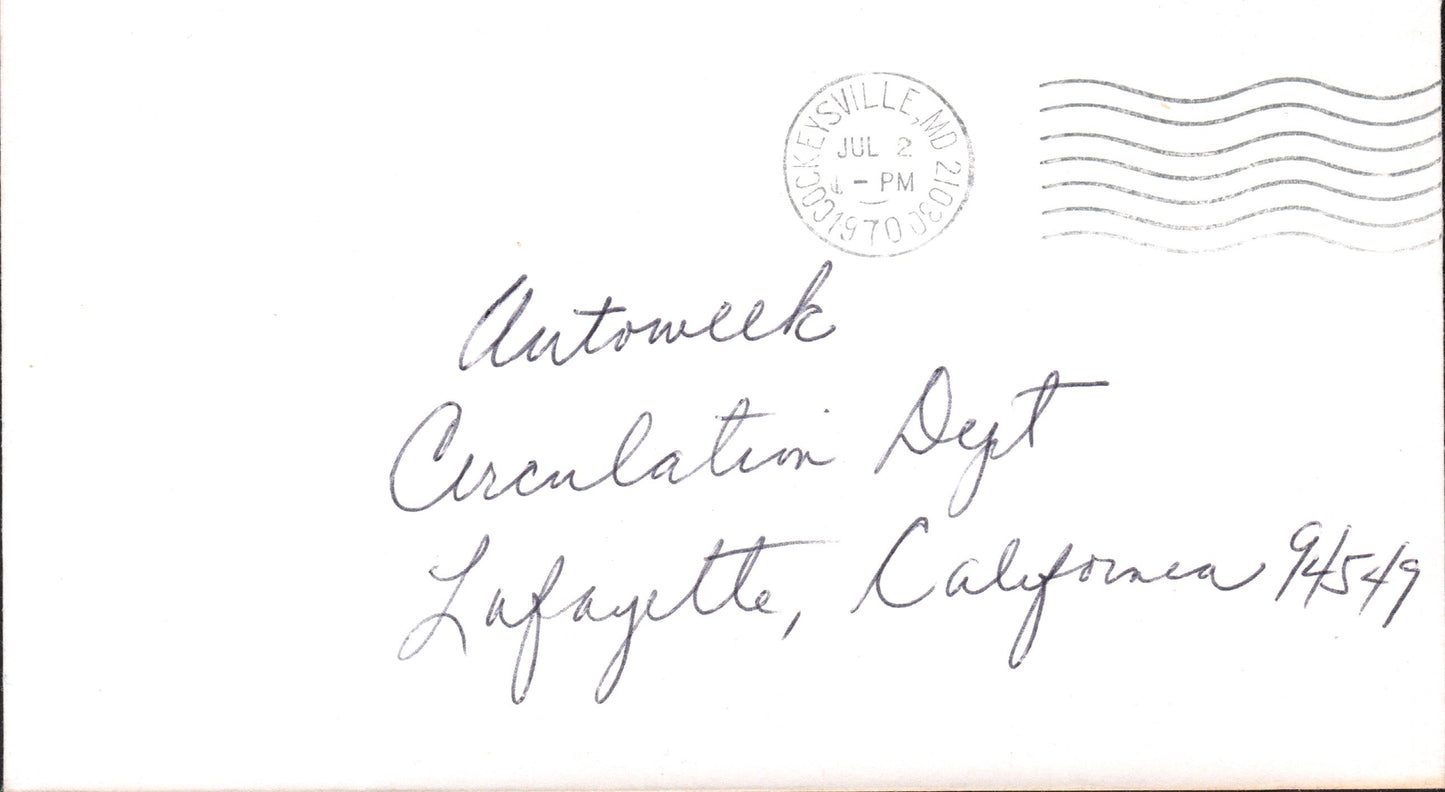 COCKEYSVILLE, MD 21030
JUL 2
PM
1970
Autoweek
Circulation Dept
Lafayette, California 94549